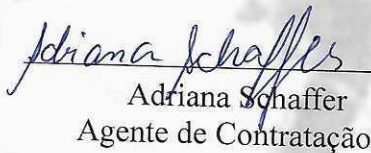 Adriana Schaffer
Adriana Schaffer
Agente de Contratação